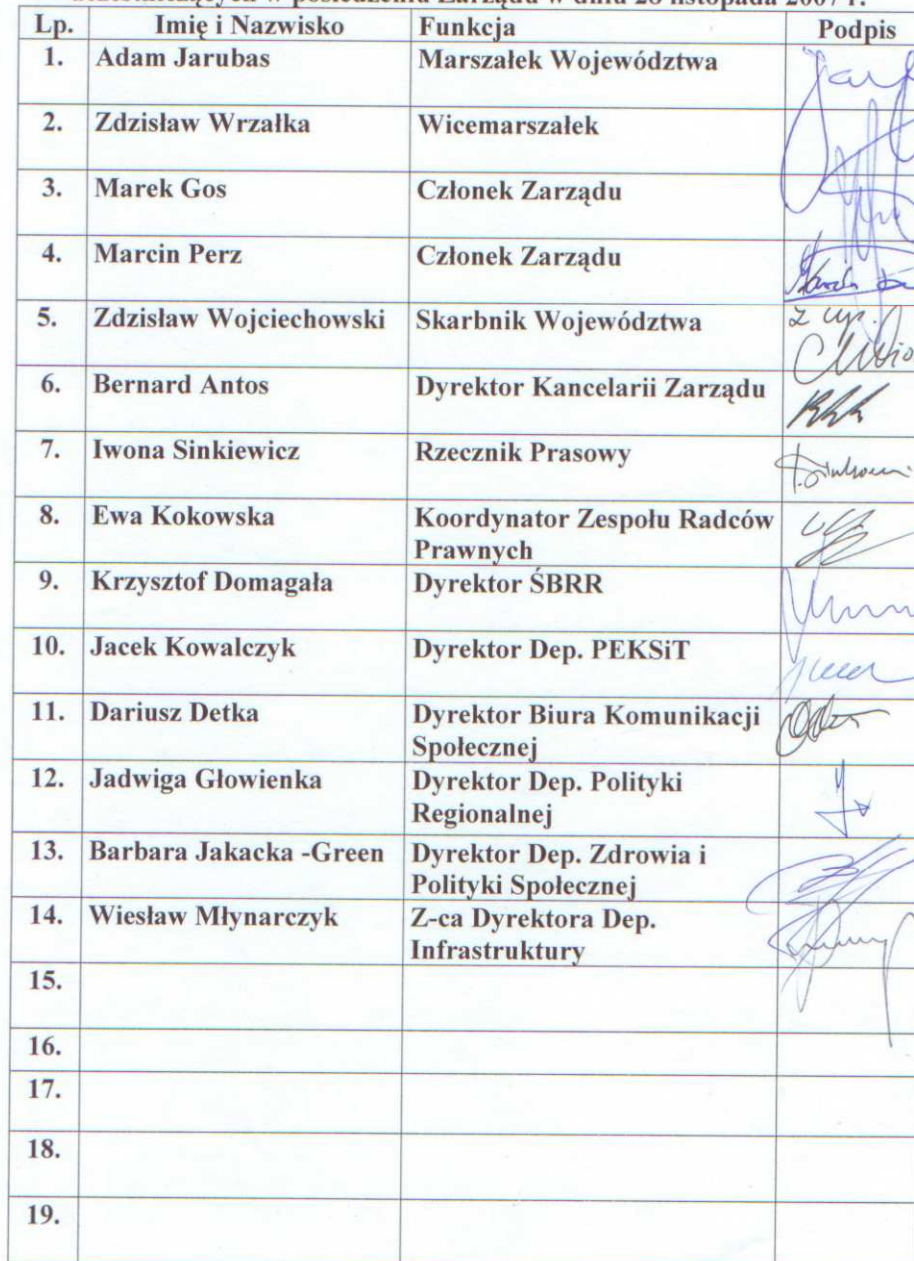 uczestniczących w posiedzeniu Zarządu w dniu 28 listopada 2007 r.
Lp. Imię i Nazwisko Funkcja Podpis
1. Adam Jarubas Marszałek Województwa
2. Zdzisław Wrzałka Wicemarszałek
3. Marek Gos Członek Zarządu
4. Marcin Perz Członek Zarządu
5. Zdzisław Wojciechowski Skarbnik Województwa z up.
6. Bernard Antos Dyrektor Kancelarii Zarządu
7. Iwona Sinkiewicz Rzecznik Prasowy
8. Ewa Kokowska Koordynator Zespołu Radców
Prawnych
9. Krzysztof Domagała Dyrektor ŚBRR
10. Jacek Kowalczyk Dyrektor Dep. PEKSiT
11. Dariusz Detka Dyrektor Biura Komunikacji
Społecznej
12. Jadwiga Głowienka Dyrektor Dep. Polityki
Regionalnej
13. Barbara Jakacka -Green Dyrektor Dep. Zdrowia i
Polityki Społecznej
14. Wiesław Młynarczyk Z-ca Dyrektora Dep.
Infrastruktury
15.
16.
17.
18.
19.